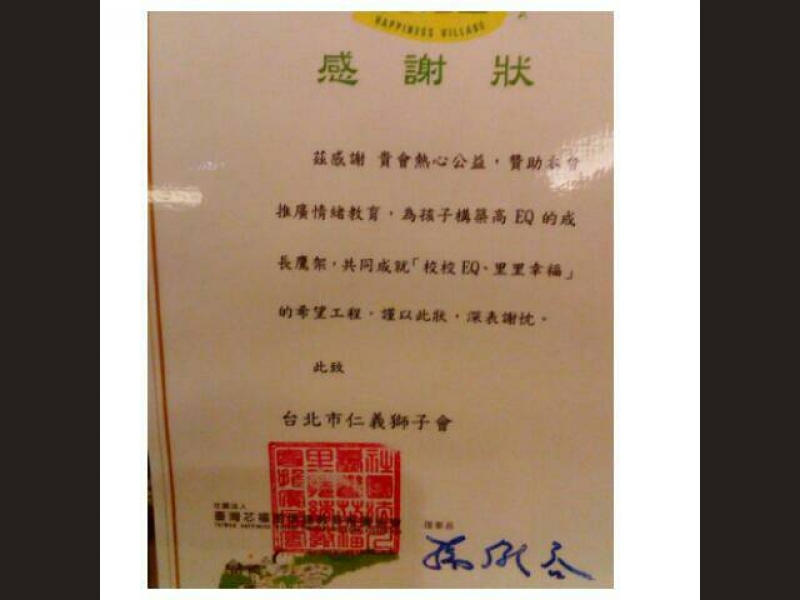 HAPPINESS VILLAGE
感謝狀
茲感謝 貴會熱心公益，贊助本會
推廣情緒教育，為孩子構築高 EQ 的成
長鷹架，共同成就「校校 EQ、里里幸福」
的希望工程。謹以此狀，深表謝忱。
此致
台北市仁義獅子會
社團法人
臺灣芯福里情緒教育推廣協會
理事長